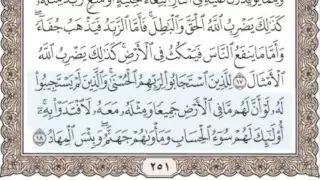 كَذَٰلِكَ يَضْرِبُ ٱللَّهُ ٱلْحَقَّ وَٱلْبَٰطِلَ ۚ فَأَمَّا ٱلزَّبَدُ فَيَذْهَبُ جُفَآءً ۖ
وَأَمَّا مَا يَنفَعُ ٱلنَّاسَ فَيَمْكُثُ فِى ٱلْأَرْضِ ۚ كَذَٰلِكَ يَضْرِبُ ٱللَّهُ
ٱلْأَمْثَالَ ۝١٧ لِلَّذِينَ ٱسْتَجَابُوا۟ لِرَبِّهِمُ ٱلْحُسْنَىٰ ۚ وَٱلَّذِينَ لَمْ يَسْتَجِيبُوا۟
لَهُۥ لَوْ أَنَّ لَهُم مَّا فِى ٱلْأَرْضِ جَمِيعًا وَمِثْلَهُۥ مَعَهُۥ لَٱفْتَدَوْا۟ بِهِۦٓ ۚ
أُو۟لَٰٓئِكَ لَهُمْ سُوٓءُ ٱلْحِسَابِ وَمَأْوَىٰهُمْ جَهَنَّمُ ۖ وَبِئْسَ ٱلْمِهَادُ ۝١٨
٢٥١